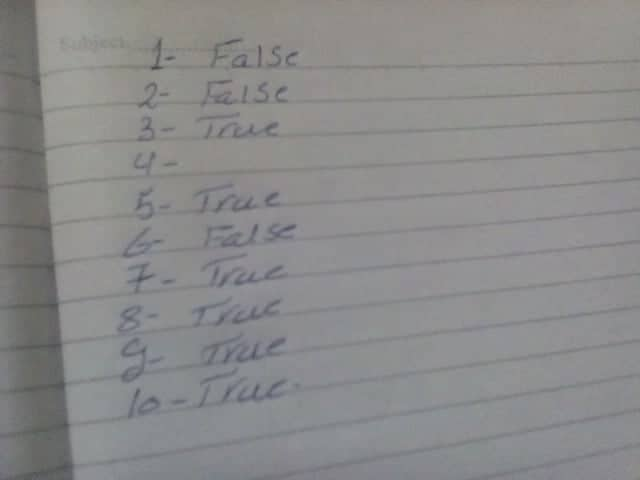 Subject
1- False
2- False
3- True
4-
5- True
6- False
7- True
8- True
9- True
10- True.